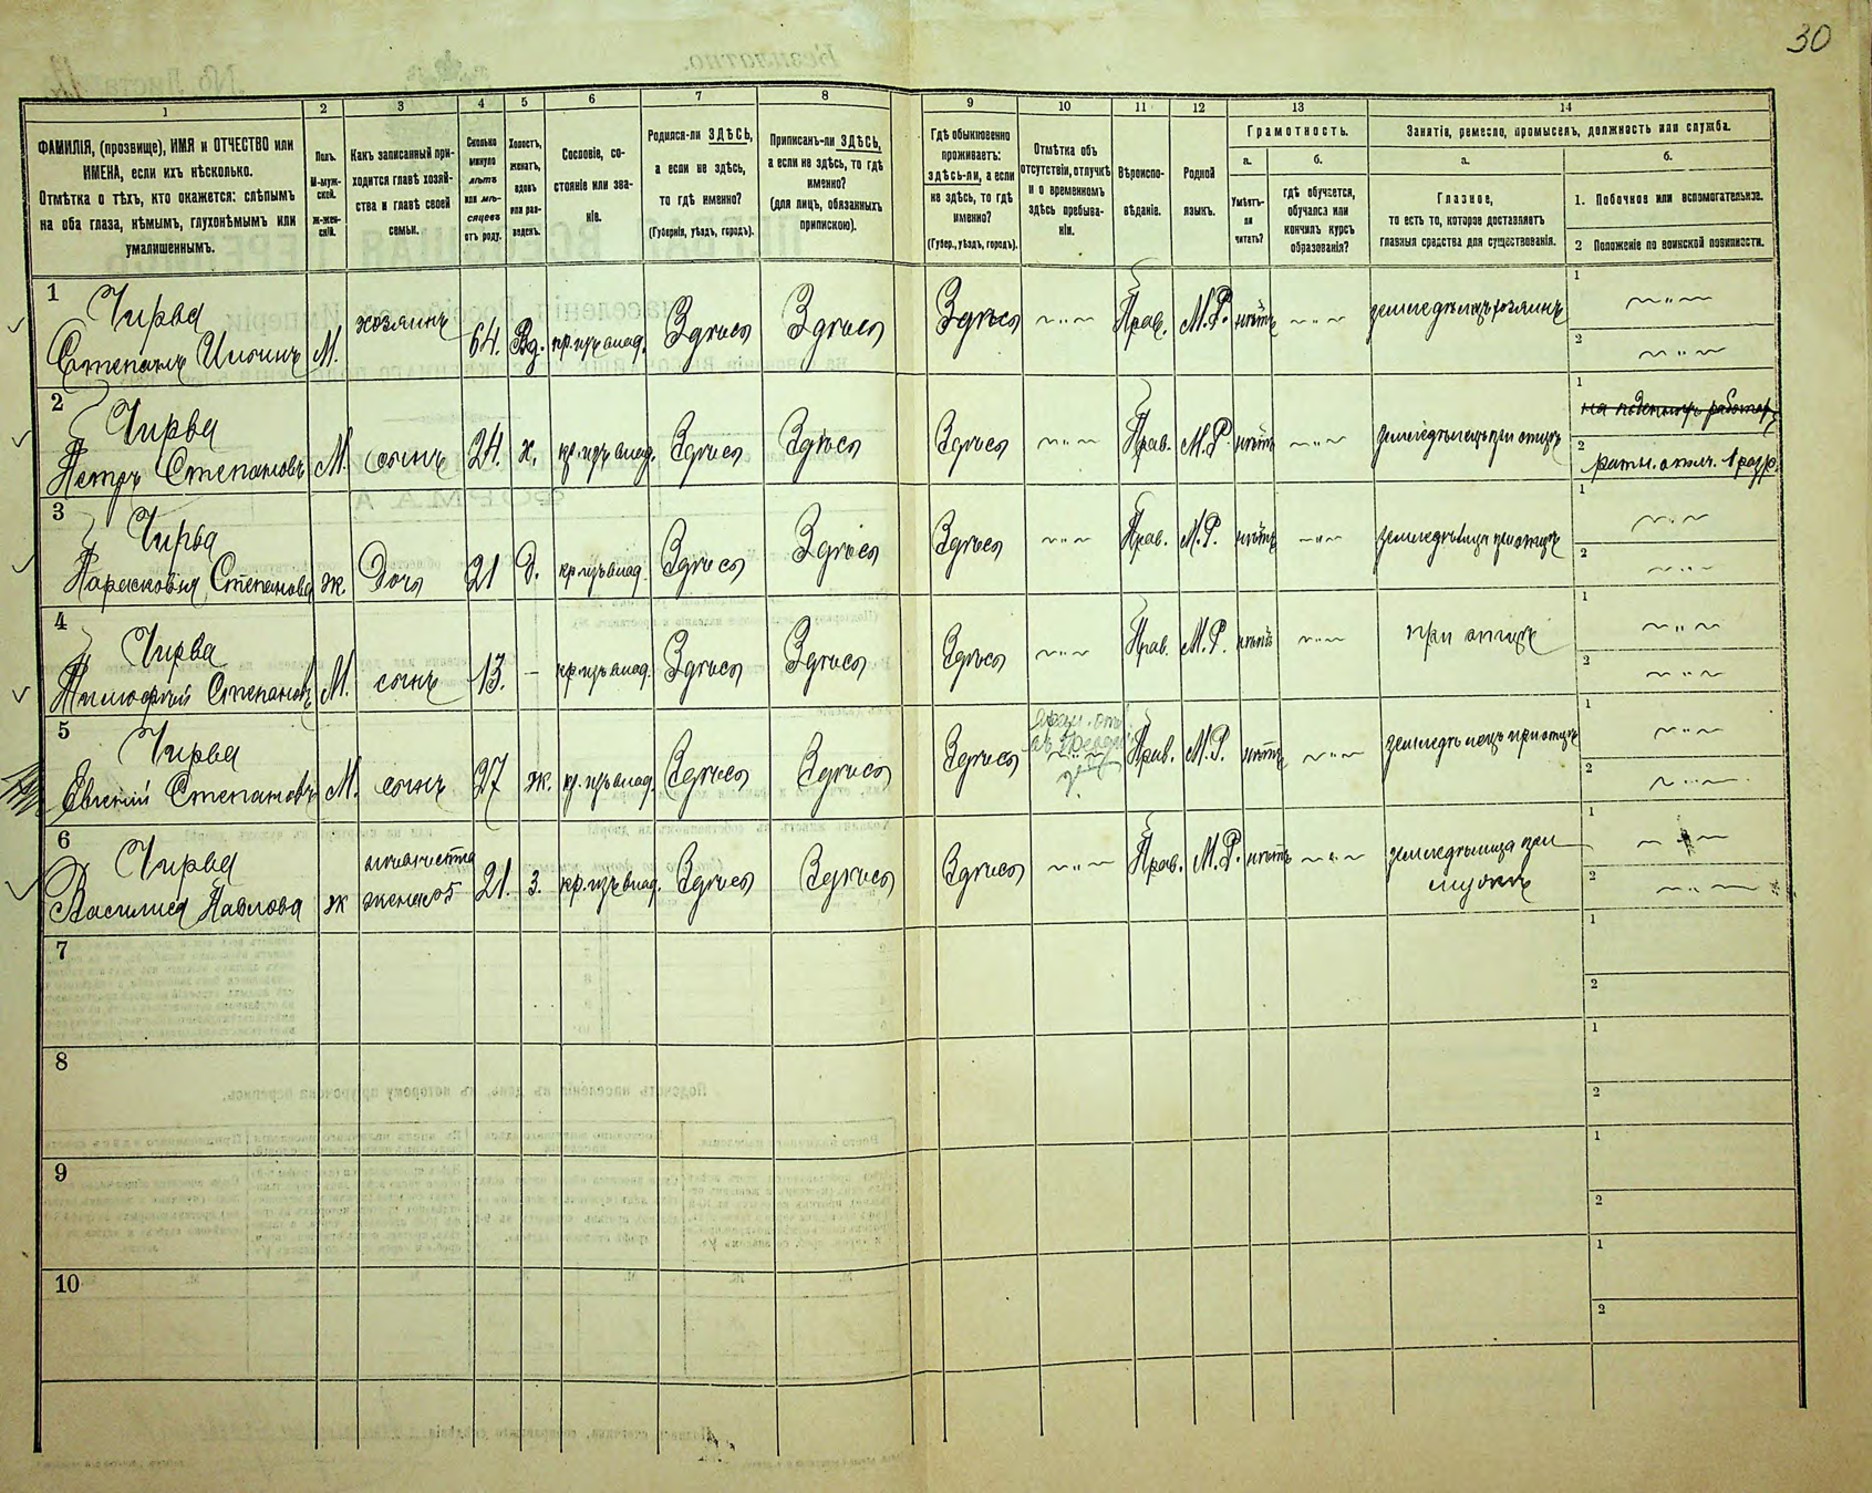 30
1
2
3
4
5
6
7
8
9
10
11
12
13
14
ФАМИЛІЯ, (прозвище), ИМЯ и ОТЧЕСТВО или
ИМЕНА, если ихъ нѣсколько.
Отмѣтка о тѣхъ, кто окажется: слѣпымъ
на оба глаза, нѣмымъ, глухонѣмымъ или
умалишеннымъ.
Полъ.
М-муж-
ской.
Ж-жен-
скій.
Какъ записанный при-
ходится главѣ хозяй-
ства и главѣ своей
семьи.
Сколько
минуло
лѣтъ
или мѣ-
сяцевъ
отъ роду.
Холостъ,
женатъ,
вдовъ
или раз-
веденъ.
Сословіе, со-
стояніе или зва-
ніе.
Родился-ли ЗДѢСЬ,
а если не здѣсь,
то гдѣ именно?
(Губернія, уѣздъ, городъ).
Приписанъ-ли ЗДѢСЬ,
а если не здѣсь, то гдѣ
именно?
(для лицъ, обязанныхъ
припискою).
Гдѣ обыкновенно
проживаетъ:
здѣсь-ли, а если
не здѣсь, то гдѣ
именно?
(Губер., уѣздъ, городъ).
Отмѣтка объ
отсутствіи, отлучкѣ
и о временномъ
здѣсь пребыва-
ніи.
Вѣроиспо-
вѣданіе.
Родной
языкъ.
Грамотность.
а.
Умѣетъ-
ли
читать?
б.
гдѣ обучается,
обучался или
кончилъ курсъ
образованія?
Занятіе, ремесло, промыселъ, должность или служба.
а.
Главное,
то есть то, которое доставляетъ
главныя средства для существованія.
б.
1. Побочное или вспомогательное.
2 Положеніе по воинской повинности.
1
Чирва
Степанъ Ильинъ М. хозяинъ 64. Вд. кр. изъ влад. Здѣсь Здѣсь Здѣсь Прав. М.Р. нѣтъ земледѣлецъ хозяинъ
1
2
2
Чирва
Петръ Степановъ М. сынъ 24. х. кр. изъ влад. Здѣсь Здѣсь Здѣсь Прав. М.Р. нѣтъ земледѣлецъ при отцѣ
1
2
ратн. опол. 1 разр.
3
Чирва
Парасковія Степанова ж. Дочь 21 д. кр. изъ влад. Здѣсь Здѣсь Здѣсь Прав. М.Р. нѣтъ земледѣлица при отцѣ
1
2
4
Чирва
Тимофей Степановъ М. сынъ 13. – кр. изъ влад. Здѣсь Здѣсь Здѣсь Прав. М.Р. нѣтъ при отцѣ
1
2
5
Чирва
Евгеній Степановъ М. сынъ 27 ж. кр. изъ влад. Здѣсь Здѣсь Здѣсь Прав. М.Р. нѣтъ земледѣлецъ при отцѣ
1
2
6
Чирва
Василиса Павлова ж 21. з. кр. изъ влад. Здѣсь Здѣсь Здѣсь Прав. М.Р. нѣтъ земледѣлица при
мужѣ
1
2
7
1
2
8
1
2
9
1
2
10
1
2